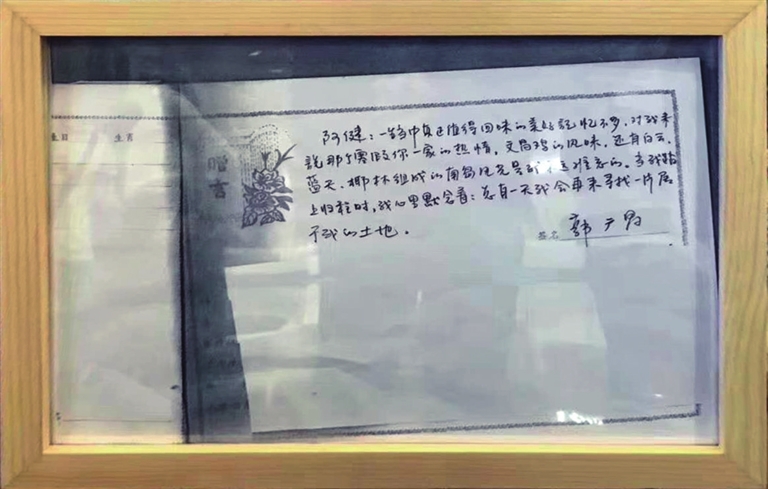 生日 生肖
赠言
阿健：一生中真正值得回味的美好记忆不多，对我来
说那个寒假你一家的热情，文昌鸡的风味，还有白云、
蓝天、椰林组成的南岛风光是我永远难忘的。当我踏
上归程时，我心里默念着：总有一天我会再来寻找一片属
于我的土地。
签名 郭广昌